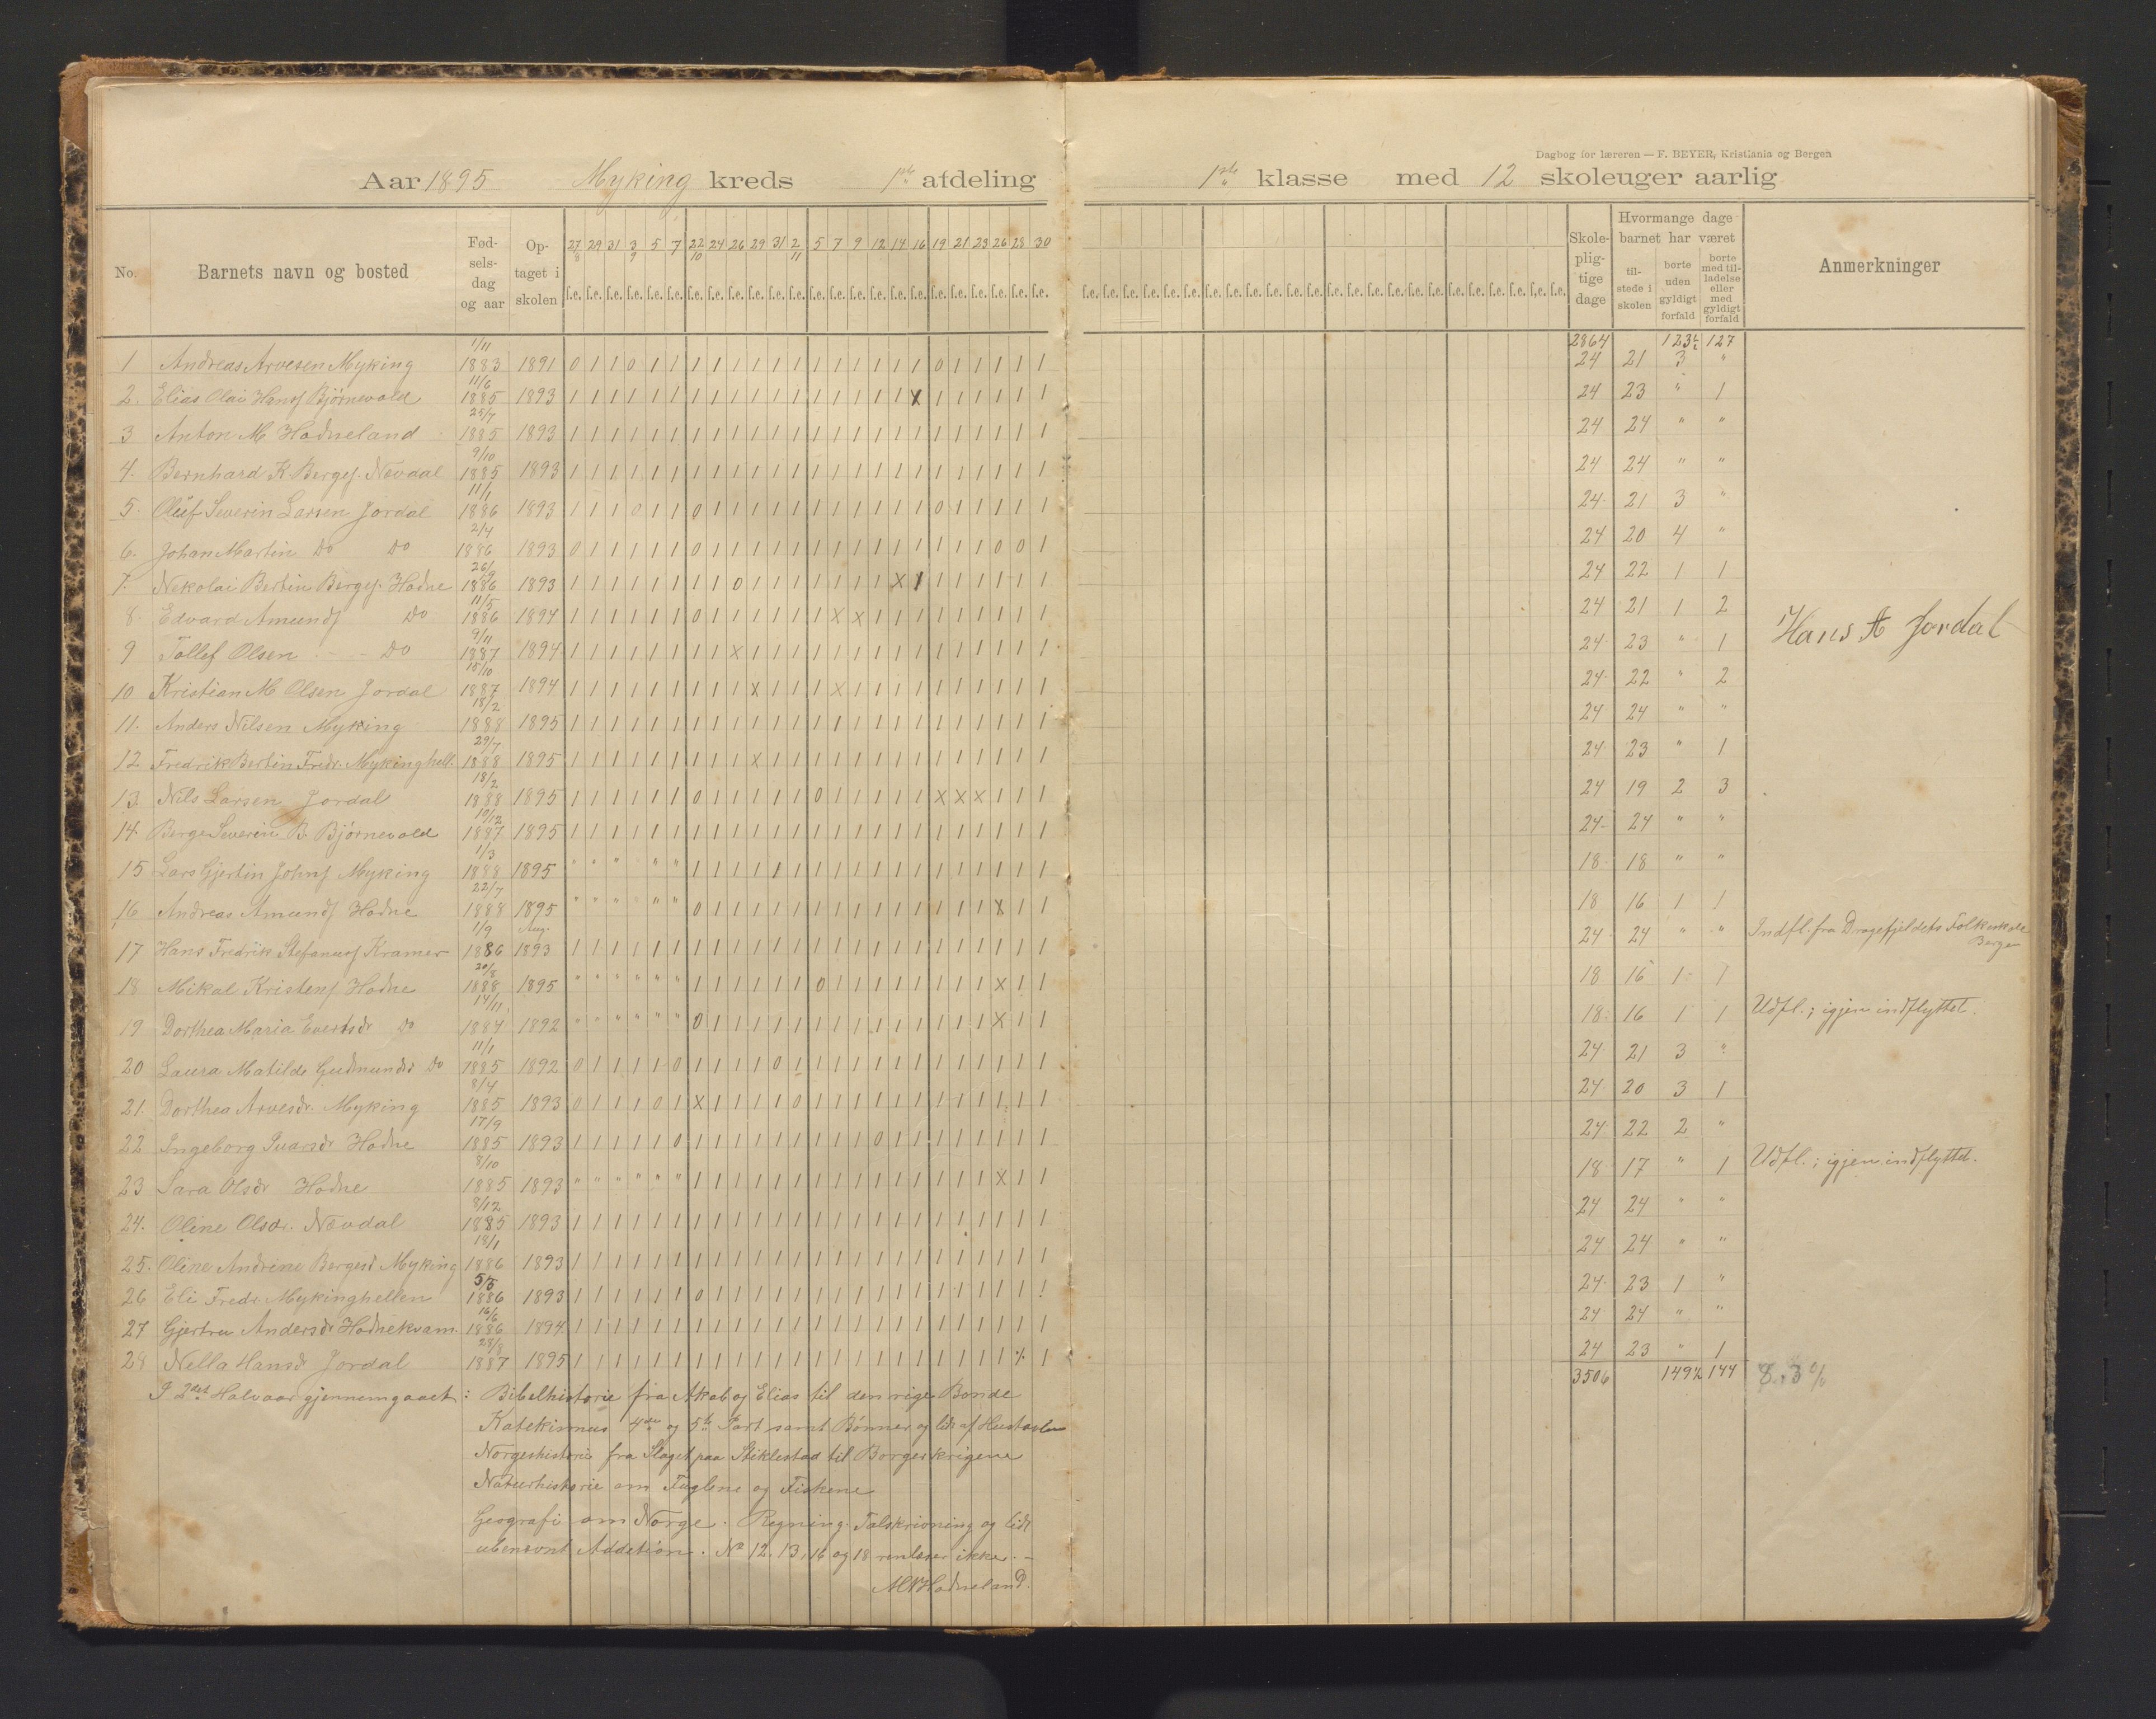 Dagbog for læreren — F. BEYER, Kristiania og Bergen
Aar 1895 Myking kreds 1ste afdeling 1ste klasse med 12 skoleuger aarlig
No. Barnets navn og bosted Fødselsdag og aar Optaget i skolen 27/8 29 31 3/9 5 7 22/10 24 26 29 31 2/11 5 7 9 12 14 16 19 21 23 26 28 30 Skolepligtige dage Hvormange dage barnet har været tilstede i skolen borte uden gyldigt forfald borte med tilladelse eller med gyldigt forfald Anmerkninger
2864 123½ 127
1 Andreas Arvesen Myking 1/11 1883 1891 0 1 1 0 1 1 1 1 1 1 1 1 1 1 1 1 1 1 0 1 1 1 1 1 24 21 3 "
2. Elias Olai Hansf Bjørnevold 11/6 1885 1893 1 1 1 1 1 1 1 1 1 1 1 1 1 1 1 1 1 X 1 1 1 1 1 1 24 23 " 1
3 Anton M. Hodneland 25/7 1885 1893 1 1 1 1 1 1 1 1 1 1 1 1 1 1 1 1 1 1 1 1 1 1 1 1 24 24 " "
4. Bernhard K. Bergef. Nævdal 9/10 1885 1893 1 1 1 1 1 1 1 1 1 1 1 1 1 1 1 1 1 1 1 1 1 1 1 1 24 24 " "
5. Oluf Severin Larsen Jordal 11/1 1886 1893 1 1 1 0 1 1 0 1 1 1 1 1 1 1 1 1 1 1 0 1 1 1 1 1 24 21 3 "
6. Johan Martin Do Do 2/4 1886 1893 0 1 1 1 1 1 0 1 1 1 1 1 1 1 1 1 1 1 1 1 1 0 0 1 24 20 4 "
7. Nekolai Bertin Bergef. Hodne 26/9 1886 1893 1 1 1 1 1 1 1 1 0 1 1 1 1 1 1 1 X 1 1 1 1 1 1 1 24 22 1 1
8. Edvard Amundf Do 11/5 1886 1894 1 1 1 1 1 1 0 1 1 1 1 1 1 X X 1 1 1 1 1 1 1 1 1 24 21 1 2
Hans A Jordal
9 Tollef Olsen Do 9/11 1887 1894 1 1 1 1 1 1 1 1 X 1 1 1 1 1 1 1 1 1 1 1 1 1 1 1 24 23 " 1
10 Kristian M. Olsen Jordal 15/10 1887 1894 1 1 1 1 1 1 1 1 1 X 1 1 1 X 1 1 1 1 1 1 1 1 1 1 24 22 " 2
11. Anders Nilsen Myking 18/2 1888 1895 1 1 1 1 1 1 1 1 1 1 1 1 1 1 1 1 1 1 1 1 1 1 1 1 24 24 " "
12 Fredrik Bertin Fredr. Mykinghell. 29/7 1888 1895 1 1 1 1 1 1 1 1 1 X 1 1 1 1 1 1 1 1 1 1 1 1 1 1 24 23 " 1
13. Nils Larsen Jordal 18/2 1888 1895 1 1 1 1 1 1 0 1 1 1 1 1 0 1 1 1 1 1 X X X 1 1 1 24 19 2 3
14. Berge Severin B. Bjørnevold 10/12 1887 1895 1 1 1 1 1 1 1 1 1 1 1 1 1 1 1 1 1 1 1 1 1 1 1 1 24 24 " "
15 Lars Gjertin Johnf Myking 1/3 1888 1895 " " " " " 1 1 1 1 1 1 1 1 1 1 1 1 1 1 1 1 1 1 18 18 " "
16 Andreas Amundf Hodne 22/7 1888 1895 " " " " " " 0 1 1 1 1 1 1 1 1 1 1 1 1 1 1 X 1 1 18 16 1 1
17 Hans Fredrik Stefanusf Kramer 1/9 1886 Aug. 1893 1 1 1 1 1 1 1 1 1 1 1 1 1 1 1 1 1 1 1 1 1 1 1 1 24 24 " " Indfl. fra Dragefjeldets Folkeskole Bergen
18 Mikal Kristenf Hodne 20/8 1888 1895 " " " " " " 1 1 1 1 1 1 0 1 1 1 1 1 1 1 1 X 1 1 18 16 1 1
19 Dorthea Maria Evertsdr Do 14/11 1884 1892 " " " " " " 0 1 1 1 1 1 1 1 1 1 1 1 1 1 1 X 1 1 18 16 1 1 Udfl.; igjen indflyttet.
20 Laura Matilde Gudmundsd Do 11/1 1885 1892 0 1 1 1 1 0 1 1 1 1 0 1 1 1 1 1 1 1 1 1 1 1 1 1 24 21 3 "
21. Dorthea Arvesdr. Myking 8/4 1885 1893 0 1 1 1 0 1 X 1 1 1 1 0 1 1 1 1 1 1 1 1 1 1 1 1 24 20 3 1
22 Ingeborg Ivarsdr Hodne 17/9 1885 1893 1 1 1 1 1 0 1 1 1 1 1 1 1 1 1 0 1 1 1 1 1 1 1 1 24 22 2 "
23 Sara Olsdr Hodne 8/10 1885 1893 " " " " " " 1 1 1 1 1 1 1 1 1 1 1 1 1 1 1 X 1 1 18 17 " 1 Udfl.; igjen indflyttet.
24. Oline Olsdr. Nævdal 8/12 1885 1893 1 1 1 1 1 1 1 1 1 1 1 1 1 1 1 1 1 1 1 1 1 1 1 1 24 24 " "
25. Oline Andrine Bergesd Myking 18/1 1886 1893 1 1 1 1 1 1 1 1 1 1 1 1 1 1 1 1 1 1 1 1 1 1 1 1 24 24 " "
26 Eli Fredr. Mykinghellen 5/5 1886 1893 1 1 1 1 1 1 0 1 1 1 1 1 1 1 1 1 1 1 1 1 1 1 1 1 24 23 1 "
27 Gjertru Andersdr Hodnekvam. 16/6 1886 1894 1 1 1 1 1 1 1 1 1 1 1 1 1 1 1 1 1 1 1 1 1 1 1 1 24 24 " "
28 Nella Hansd Jordal 28/8 1887 1895 1 1 1 1 1 1 1 1 1 1 1 1 1 1 1 1 1 1 1 1 1 1 X 1 24 23 " 1
3506 149½ 144 8.3 %
I 2det Halvaar gjennemgaaet: Bibelhistorie fra Akab og Elias til den rige Bonde
Katekismus 4de og 5te Part samt Bønner og lidt af Hustavlen
Norgeshistorie fra Slaget paa Stiklestad til Borgerkrigene
Naturhistorie om Fuglene og Fiskene
Geografi om Norge. Regning: Talskrivning og lidt
ubenævnt Addetion. No 12. 13, 16 og 18 renlæser ikke. –
MNHodneland.